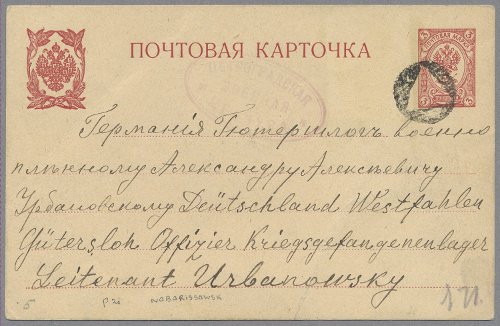 ПОЧТОВАЯ КАРТОЧКА
3 3
ПОЧТОВАЯ МАРКА
Германія Гютерслогъ военно
плѣнному Александру Алексѣевичу
Урбановскому Deütschland Westfahlen
Gütersloh Offizier Kriegsgefangenenlager
Leitenant Urbanowsky
5 NOBORISSOWSK